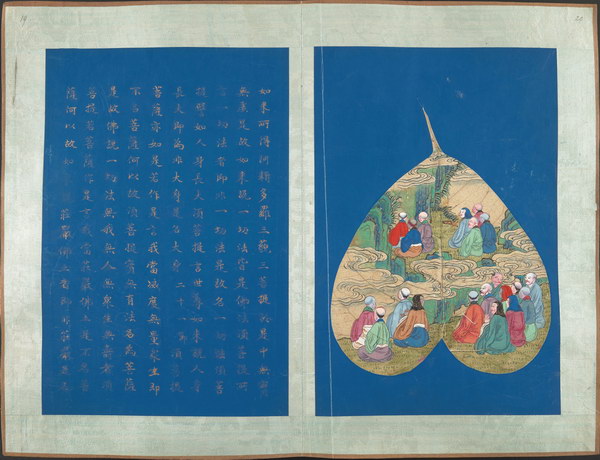 19
20
如來所得阿耨多羅三藐三菩提於是中無實
無虛是故如來說一切法皆是佛法須菩提所
言一切法者即非一切法是故名一切法須菩
提譬如人身長大須菩提言世尊如來說人身
長大即為非大身是名大身二十節須菩提
菩薩亦如是若作是言我當滅度無量眾生即
不名菩薩何以故須菩提實無有法名為菩薩
是故佛說一切法無我無人無眾生無壽者須
菩提若菩薩作是言我當莊嚴佛土是不名菩
薩何以故如莊嚴佛土者即非莊嚴是名